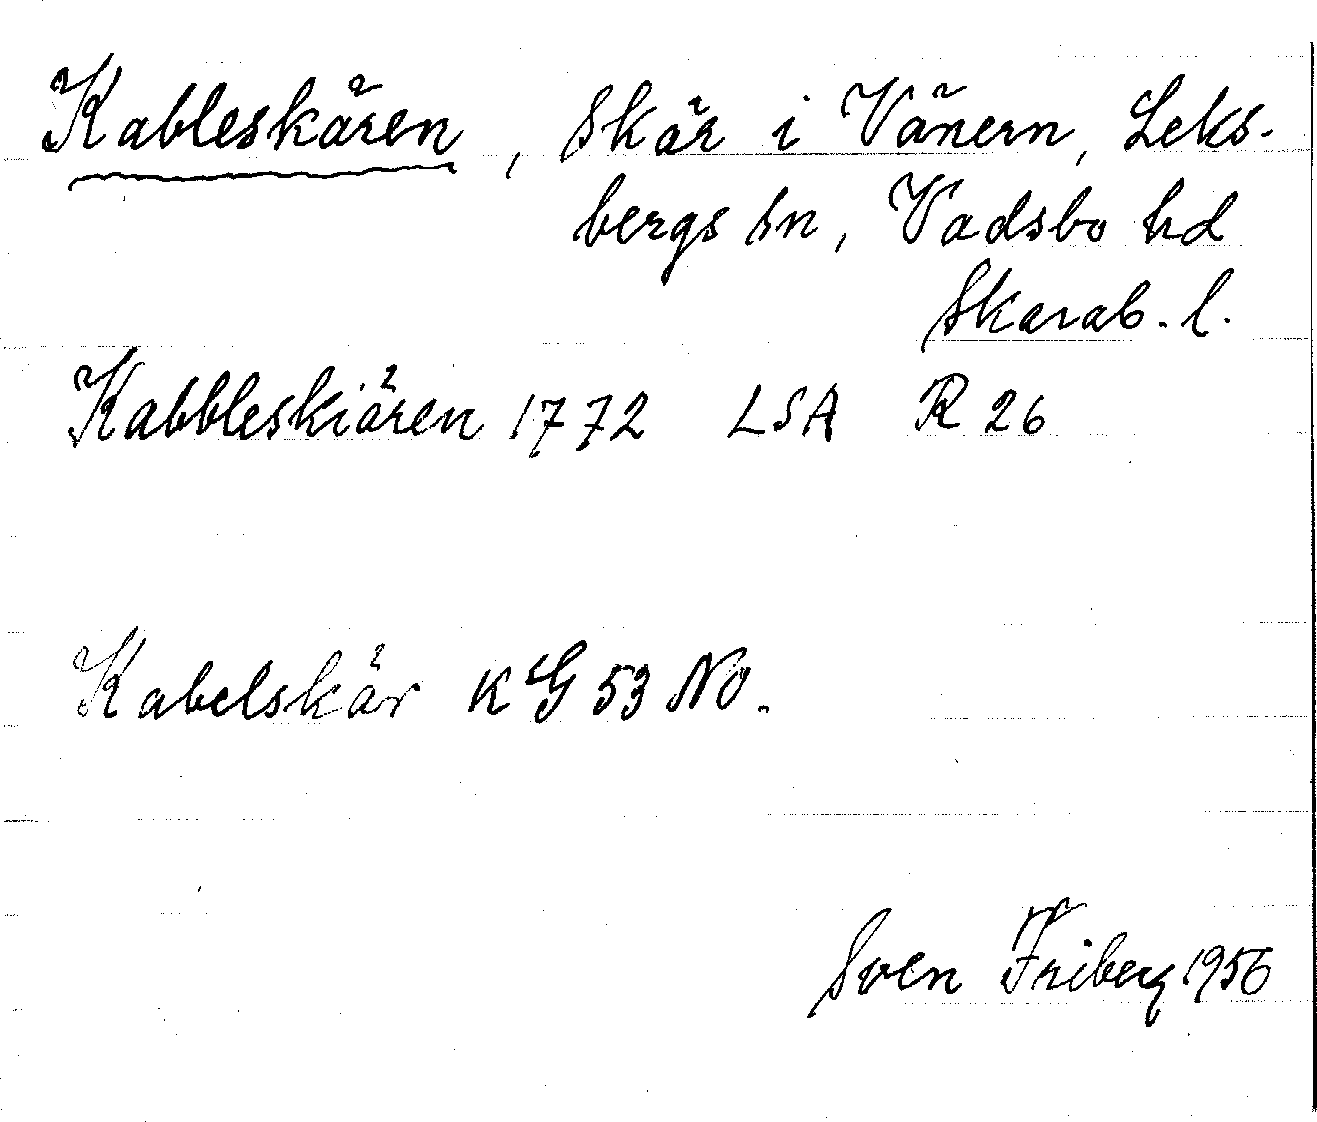 Kableskären, Skär i Vänern, Leks-
bergs sn, Vadsbo hd
Skarab. l.
Kabbleskiären 1772 LSA R 26
Kabelskär KG 53 NO.
Sven Friberg 1956